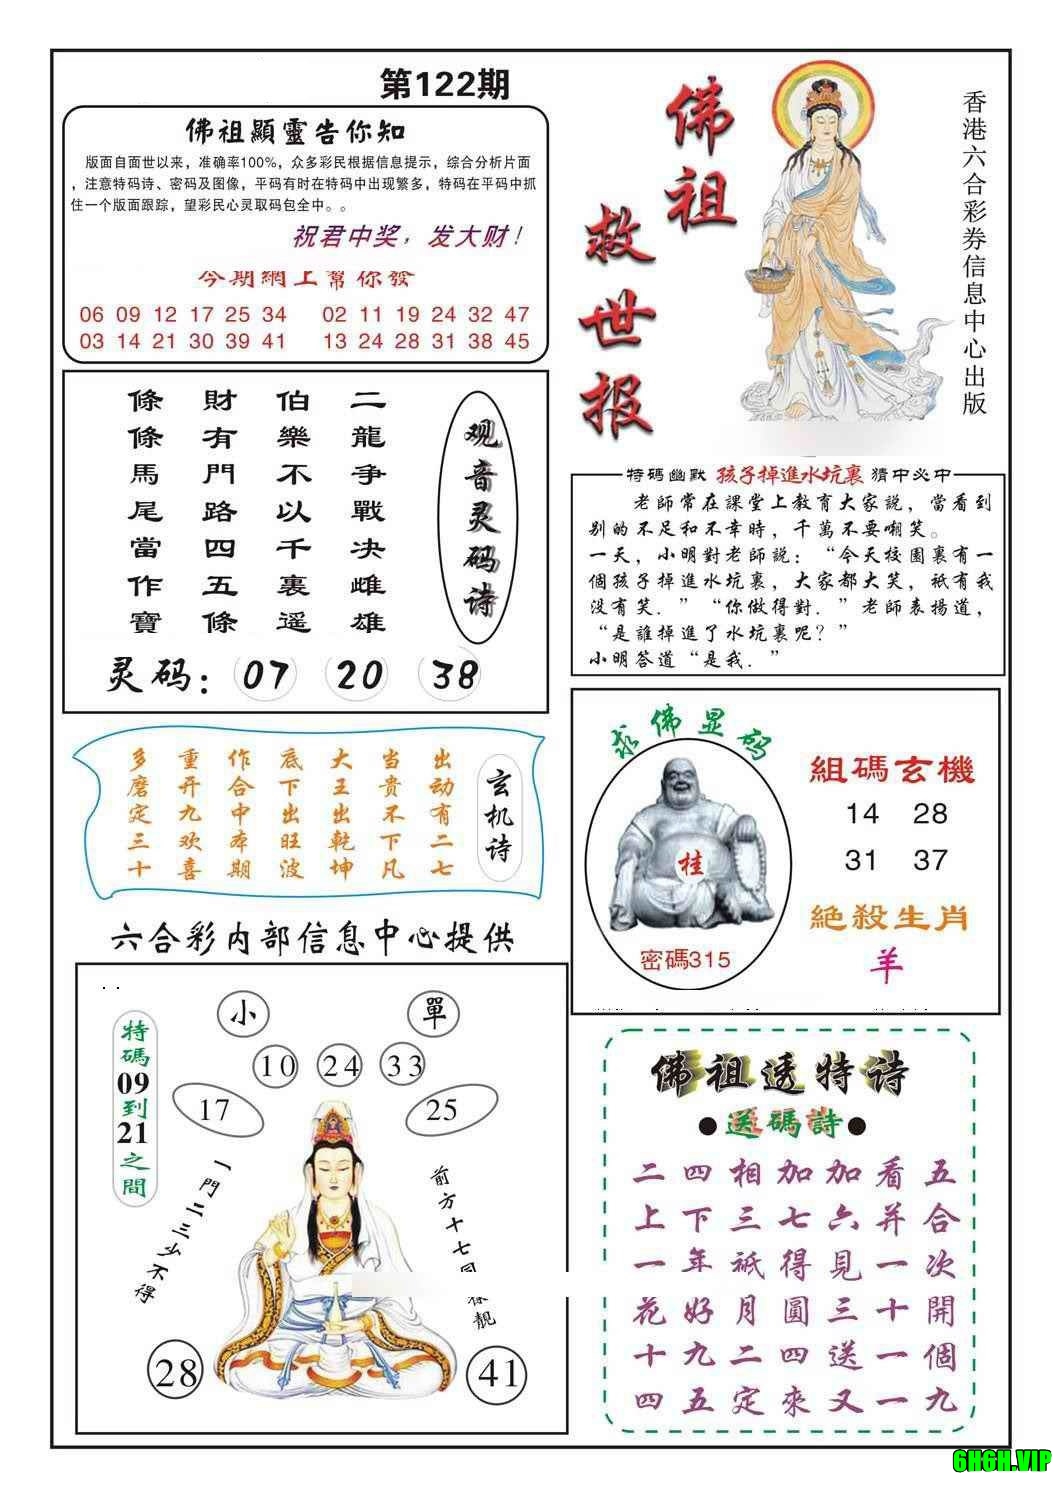 第122期
佛祖顯靈告你知
版面自面世以来，准确率100%，众多彩民根据信息提示，综合分析片面
，注意特码诗、密码及图像，平码有时在特码中出现繁多，特码在平码中抓
住一个版面跟踪，望彩民心灵取码包全中。。
祝君中奖，发大财！
今期網上幫你發
06 09 12 17 25 34 02 11 19 24 32 47
03 14 21 30 39 41 13 24 28 31 38 45
佛祖
救世报
香港六合彩券信息中心出版
观音灵码诗
二龍争戰决雌雄
伯樂不以千裏遥
財有門路四五條
條條馬尾當作寶
灵码：07 20 38
特码幽默 孩子掉進水坑裏 猜中必中
老師常在課堂上教育大家説，當看到
别的不足和不幸時，千萬不要嘲笑。
一天，小明對老師説：“今天校園裏有一
個孩子掉進水坑裏，大家都大笑，祇有我
没有笑．”“你做得對．”老師表揚道，
“是誰掉進了水坑裏呢？”
小明答道“是我．”
玄机诗
出动有二七
当贵不下凡
大王出乾坤
底下出旺波
作合中本期
重开九欢喜
多磨定三十
求佛显码
桂
密碼315
組碼玄機
14 28
31 37
絶殺生肖
羊
六合彩内部信息中心提供
小 單
10 24 33
17 25
特碼09到21之間
一門二三少不得
前方十七
靓
28 41
佛祖透特诗
●送碼詩●
二四相加加看五
上下三七六并合
一年祇得見一次
花好月圓三十開
十九二四送一個
四五定來又一九
6H6H.VIP